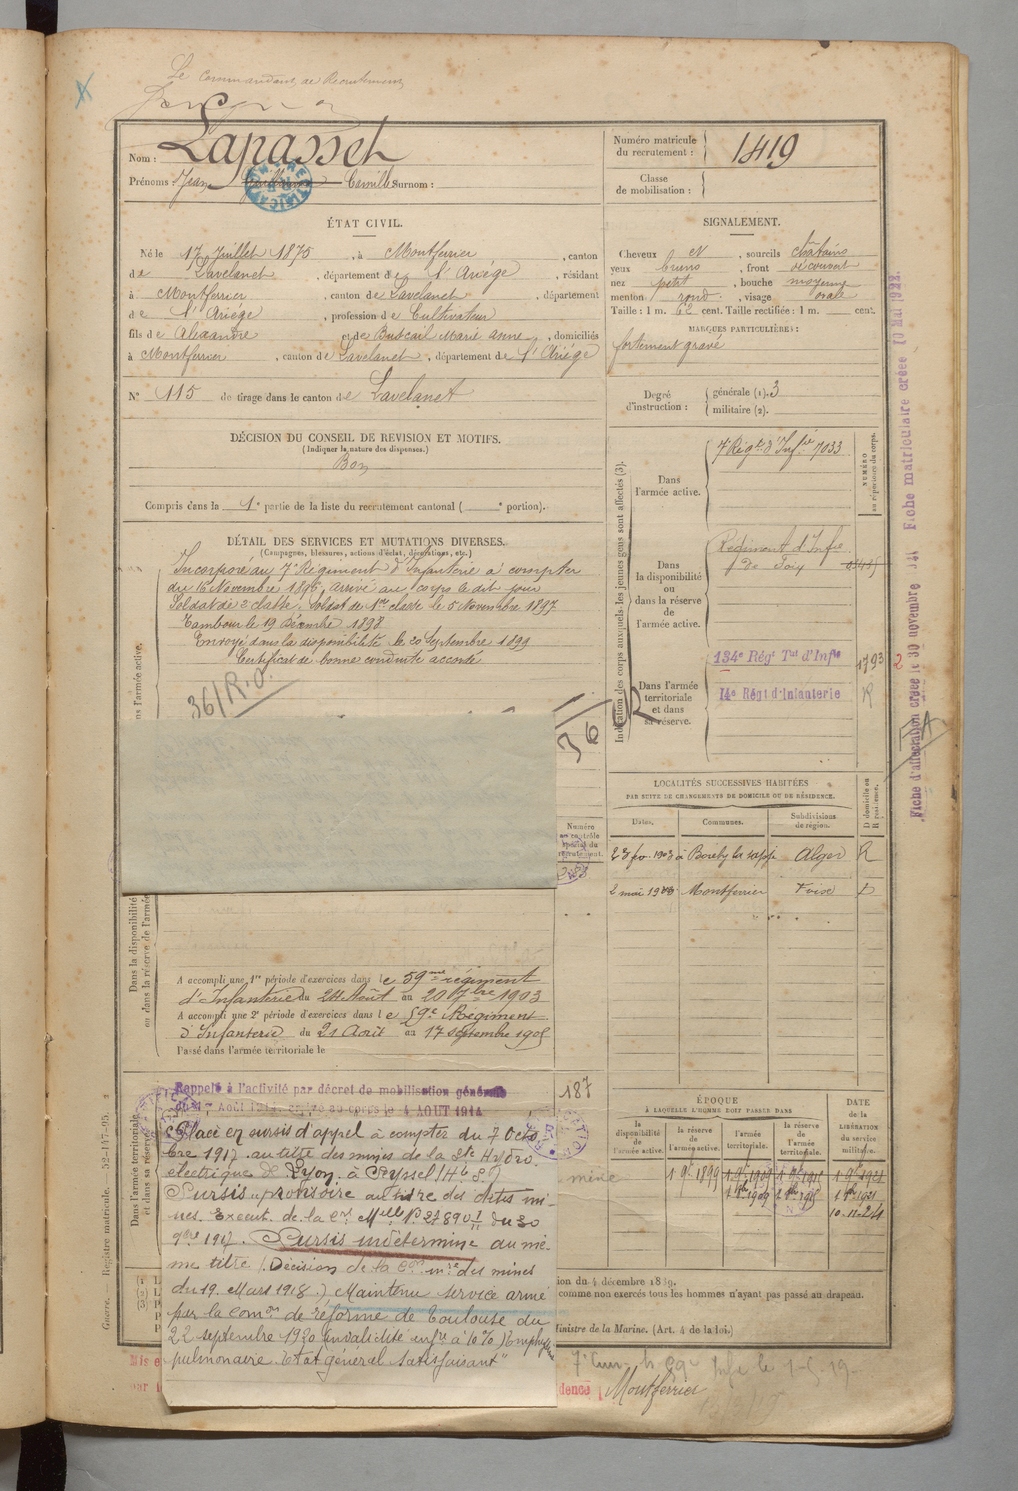 Le Commandant de Recrutement
Nom : Lapasset
Prénoms : Jean Guillaume Camille Surnom :
Numéro matricule du recrutement : 1419
Classe de mobilisation :
ÉTAT CIVIL.
Né le 17 Juillet 1875, à Montferrier, canton
de Lavelanet, département de l'Ariége, résidant
à Montferrier, canton de Lavelanet, département
de l'Ariége, profession de Cultivateur
fils de Alexandre et de Buscail Marie Anne, domiciliés
à Montferrier, canton de Lavelanet, département de l'Ariége
N° 115 de tirage dans le canton de Lavelanet
SIGNALEMENT.
Cheveux N, sourcils châtains
yeux bruns, front découvert
nez petit, bouche moyenne
menton rond, visage ovale
Taille : 1 m. 62 cent. Taille rectifiée : 1 m. cent.
MARQUES PARTICULIÈRES :
fortement gravé
Degré d'instruction : générale (1). 3
militaire (2).
DÉCISION DU CONSEIL DE REVISION ET MOTIFS.
(Indiquer la nature des dispenses.)
Bon
Compris dans la 1e partie de la liste du recrutement cantonal ( e portion).
DÉTAIL DES SERVICES ET MUTATIONS DIVERSES.
(Campagnes, blessures, actions d'éclat, décorations, etc.)
Incorporé au 7e Régiment d'Infanterie à compter
du 16 Novembre 1896, arrivé au corps le dit jour
Soldat de 2e classe. Soldat de 1re classe le 5 Novembre 1897
Tambour le 19 Décembre 1898
Envoyé dans la disponibilité le 20 Septembre 1899
Certificat de bonne conduite accordé
36/R.O.
Indication des corps auxquels les jeunes gens sont affectés (3).
NUMÉRO au répertoire du corps.
Dans l'armée active.
7e Régt d'Infie 7033
Dans la disponibilité ou dans la réserve de l'armée active.
Régiment d'Infie
de Foix
Dans l'armée territoriale et dans sa réserve.
134e Régt Tal d'Infie 1793
14e Régt d'Infanterie R
LOCALITÉS SUCCESSIVES HABITÉES
PAR SUITE DE CHANGEMENTS DE DOMICILE OU DE RÉSIDENCE.
Dates. Communes. Subdivisions de région. D domicile ou R résidence.
Alger R
2 mai Montferrier Foix D
Numéro au contrôle spécial du recrutement.
Dans la disponibilité ou dans la réserve de l'armée
A accompli une 1re période d'exercices dans le 59me régiment
d'Infanterie du 24 Août au 20 7bre 1903
A accompli une 2e période d'exercices dans le 59e Régiment
d'Infanterie du 21 Août au 17 septembre 1905
Passé dans l'armée territoriale le
Rappelé à l'activité par décret de mobilisation générale
4 AOUT 1914
187
Placé en sursis d'appel à compter du 7 Octo
bre 1917 au titre des mines de la Sté Hydro
électrique de Lyon, à Seyssel (Hte S.)
Sursis provisoire au titre des dites mi-
nes.
9bre 1917. Sursis indéterminé au mê-
me titre (Décision de la mines
du 19 Mars 1918.) Maintenu service armé
par la comon de réforme de Toulouse du
22 septembre 1920 invalidité infre à 10% Emphysème
pulmonaire. Etat général satisfaisant"
ÉPOQUE
À LAQUELLE L'HOMME DOIT PASSER DANS
la disponibilité de l'armée active. la réserve de l'armée active. l'armée territoriale. la réserve de l'armée territoriale.
DATE de la LIBÉRATION du service militaire.
Dans l'armée territoriale et dans sa réserve
Guerre. — Registre matricule. — 52-117-95.
comme non exercés tous les hommes n'ayant pas passé au drapeau.
Ministre de la Marine. (Art. 4 de la loi.)
Montferrier
Fiche d'affectation créée le 30 novembre
Fiche matriculaire créée 10 Mai 1922.